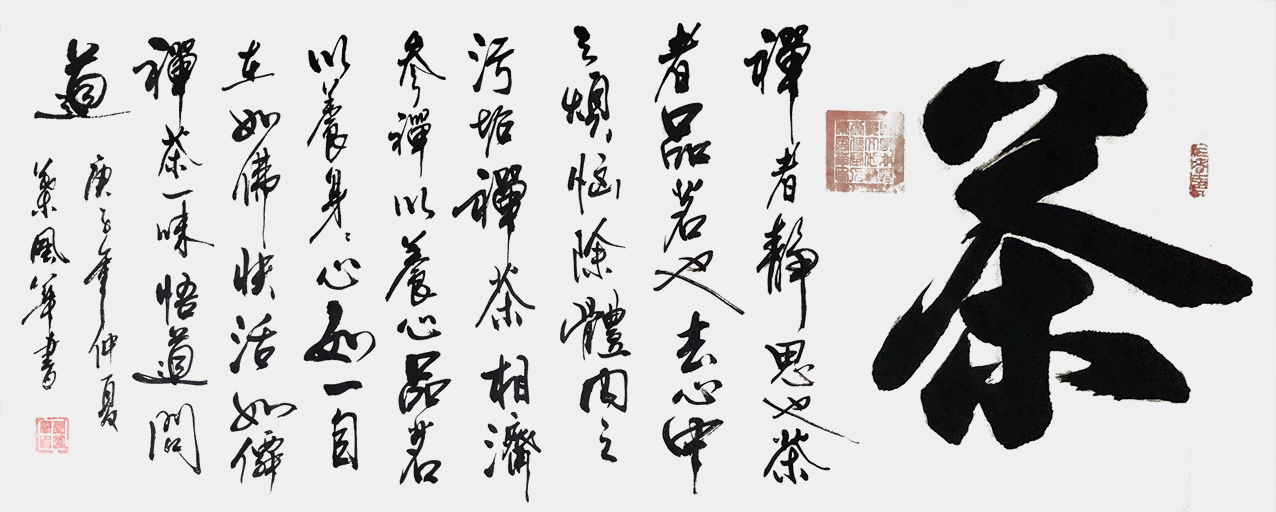 茶
禪者靜思也茶
者品茗也去心中
之煩惱除體内之
污垢禪茶相濟
參禪以養心品茗
以養身身心如一自
在如佛快活如僊
禪茶一味悟道問
道
庚子年仲夏
葉風華書